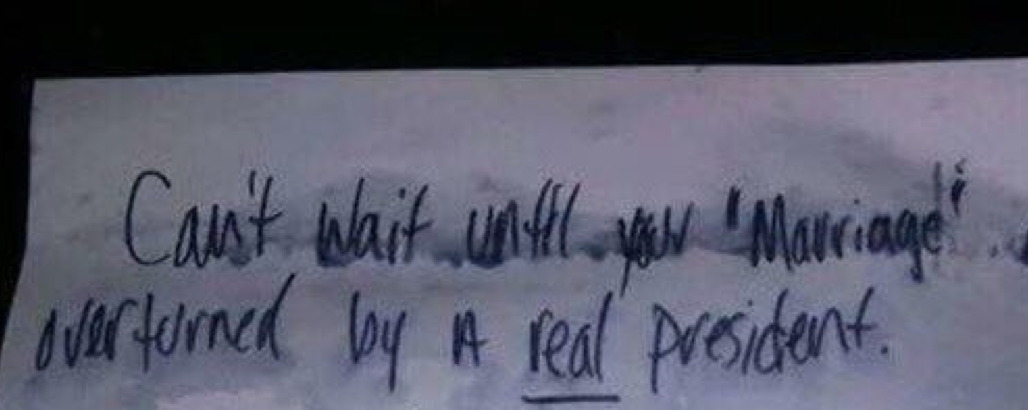 Can't Wait until your "Marriage"
overturned by A real president.